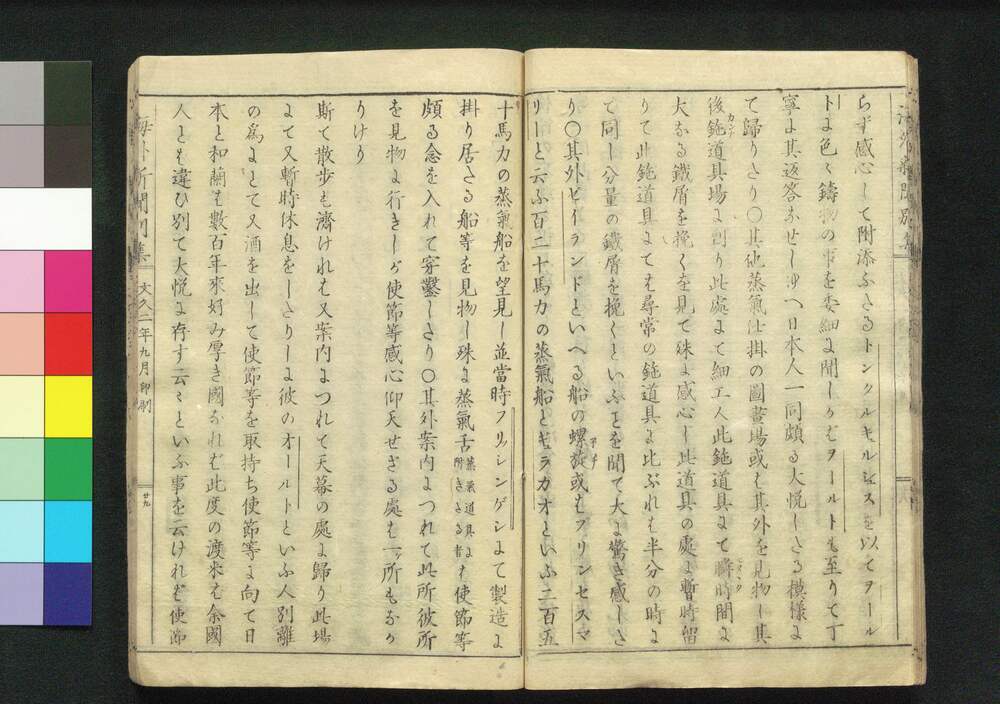 らず感心して附添ふたるトンクルキルシュスを以てヲール
トに色々鑄物の事を委細に聞しかばヲールトも至りて丁
寧に其返答なせしゆへ日本人一同頗る大悦したる模樣に
て歸りたり〇其他蒸氣仕掛の圖畫場或は其外を見物し其
後鉋道具場に到り此處にて細工人此鉋道具にて瞬時間に
カンナ
大なる鐵屑を挽くを見て殊に感心し此道具の處に暫時留
りて此鉋道具にては尋常の鉋道具に比ぶれは半分の時に
て同し分量の鐵屑を挽くといふことを聞て大に驚き感した
り〇其外ビイランドといへる船の螺旋或はプリンセスマ
子ヂ
リーと云ふ百二十馬力の蒸氣船とキュラカオといふ二百五
十馬力の蒸氣船を望見し並當時フリッシンゲンにて製造に
掛り居たる船等を見物し殊に蒸氣舌蒸氣道具に附きたる者は使節等
頗る念を入れて穿鑿したり〇其外案内につれて此所彼所
を見物に行きしが使節等感心仰天せざる處は一ヶ所もなか
りけり
斯て散歩も濟けれは又案内につれて天幕の處に歸り此場
にて又暫時休息をしたりしに彼のオールトといふ人別離
の爲にとて又酒を出して使節等を取持ち使節等に向て日
本と和蘭は數百年來好み厚き國なれば此度の渡來は余國
人とは違ひ別て大悦に存す云々といふ事を云けれは使節
海外新聞別集
文久二年九月印刷
廿九